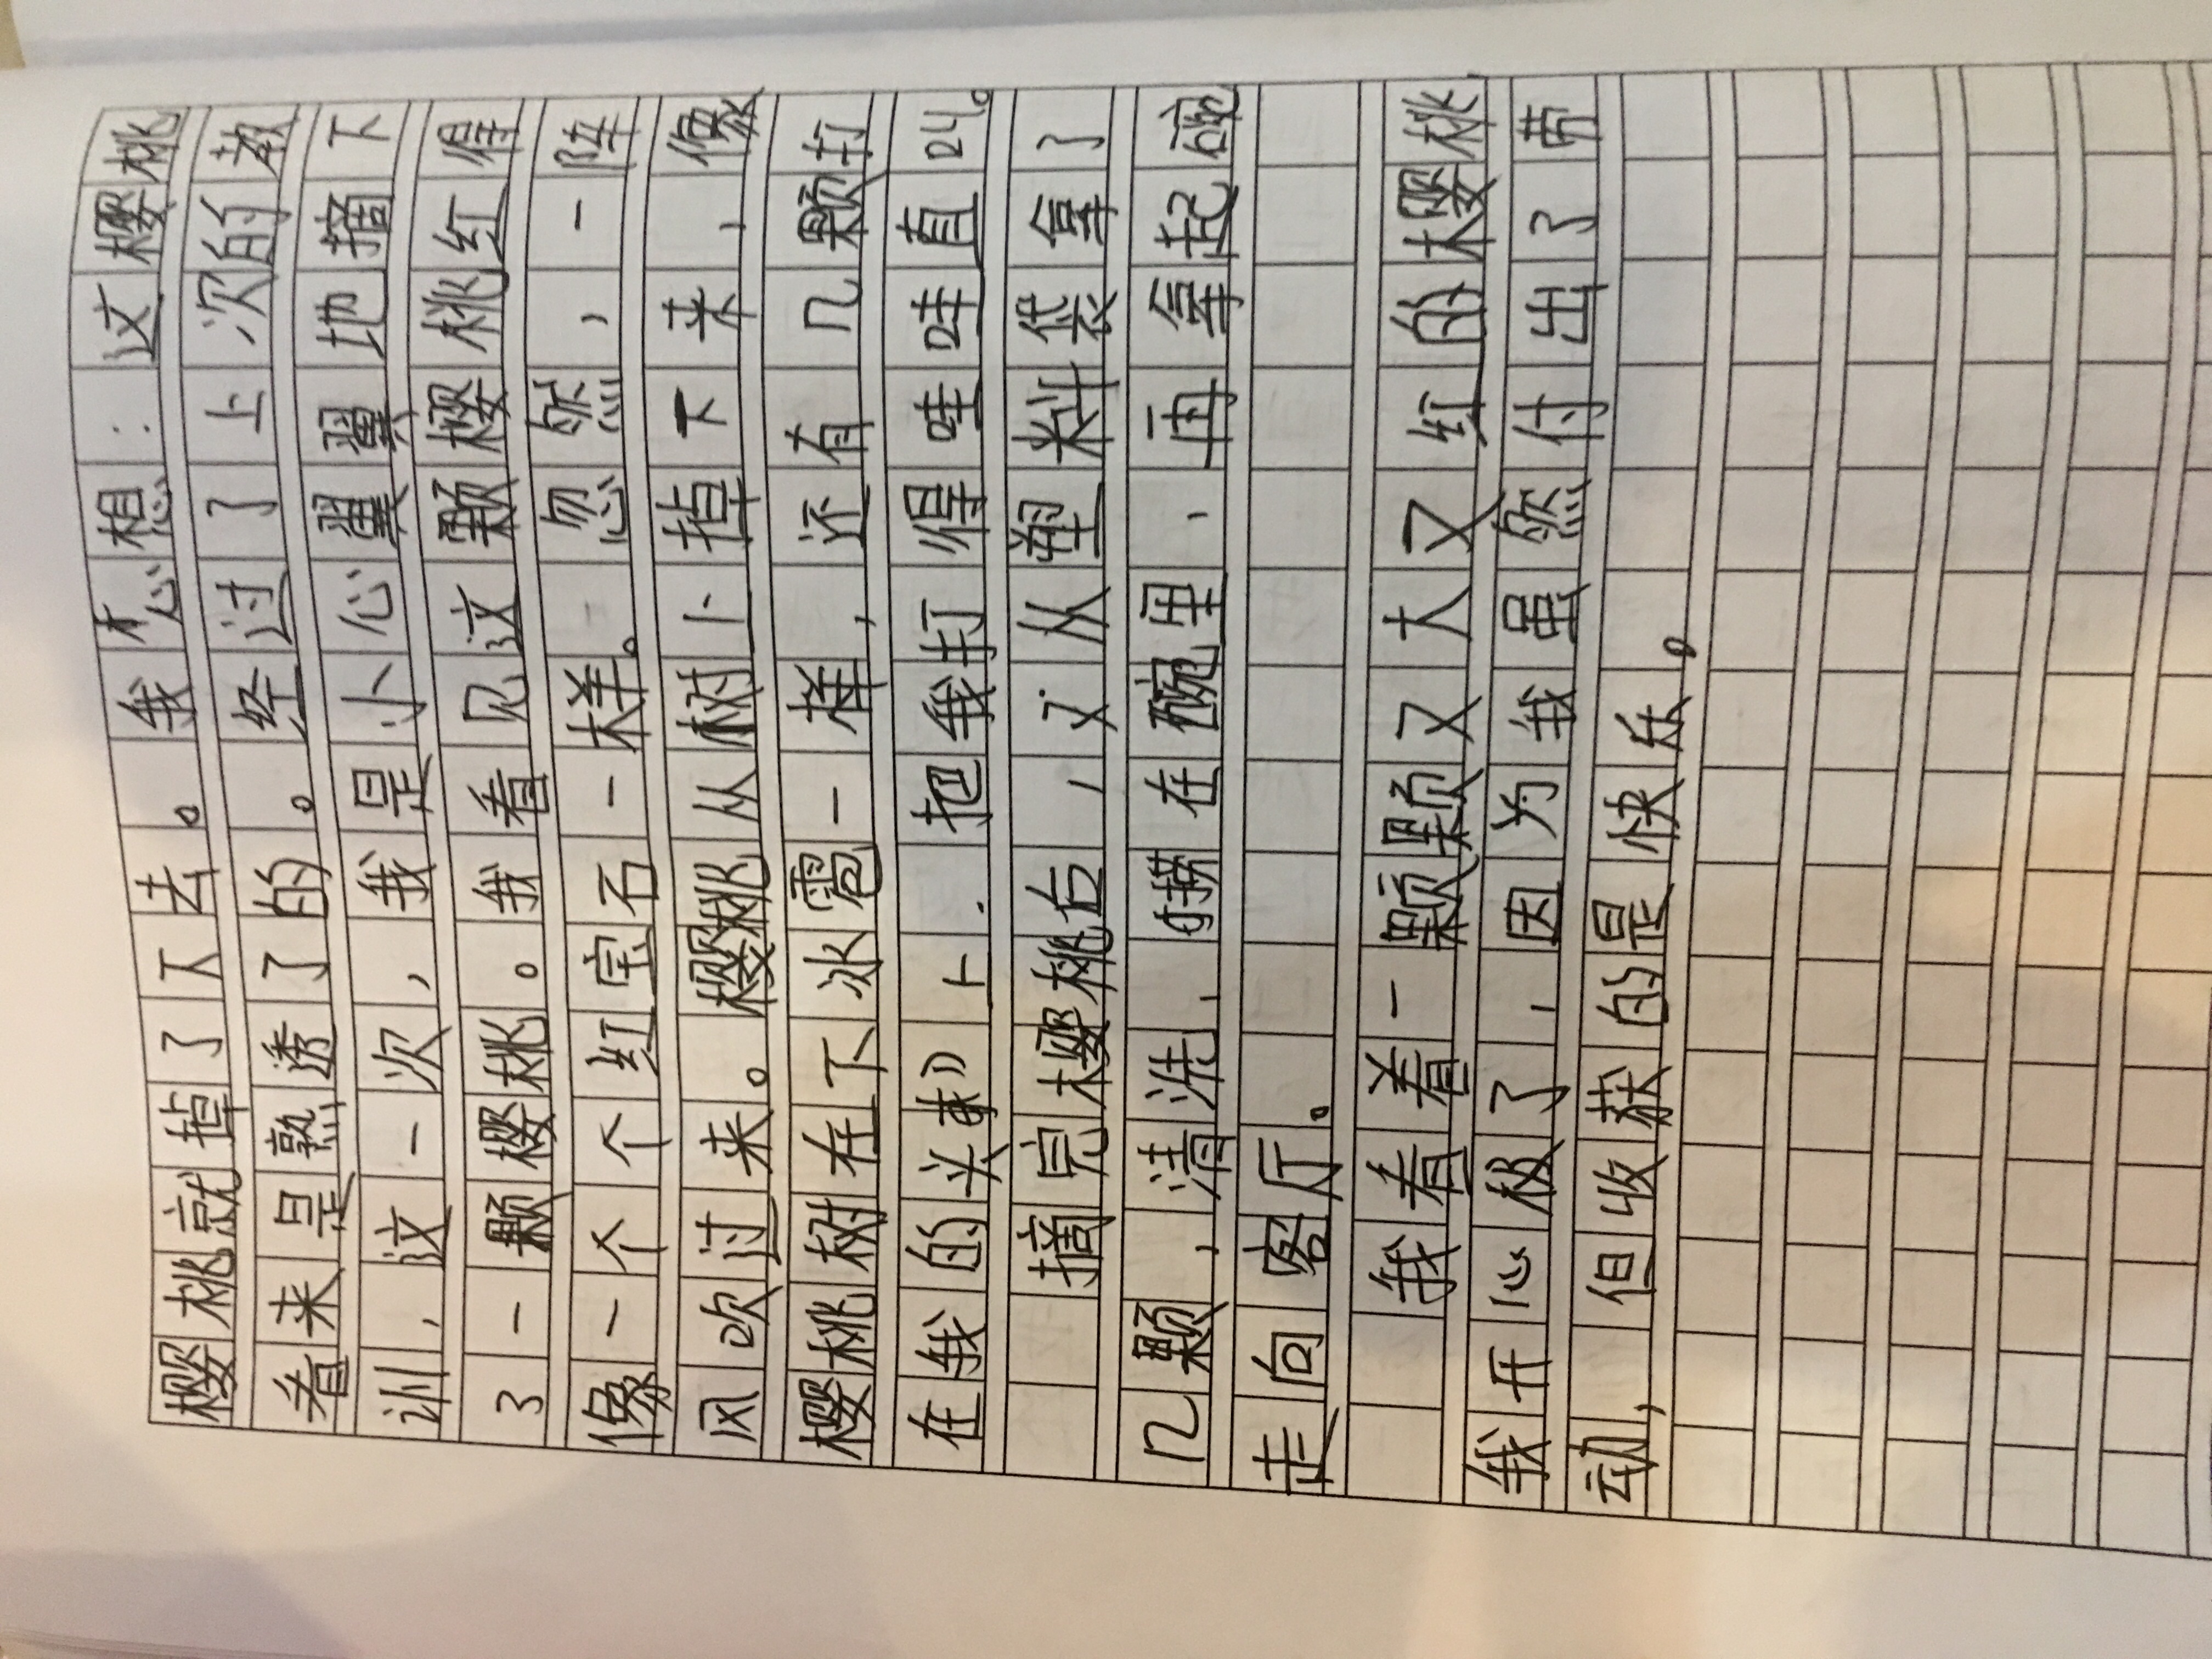 樱桃就掉了下去。我心想：这樱桃
看来是熟透了的。经过了上次的教
训，这一次，我是小心翼翼地摘下
了一颗樱桃。我看见这颗樱桃红得
像一个个红宝石一样。忽然，一阵
风吹过来。樱桃从树上掉下来，像
樱桃树在下冰雹一样，还有几颗打
在我的头上，把我打得哇哇直叫。
摘完樱桃后，又从塑料袋拿了
几颗，清洗，捞在碗里，再拿起碗
走向客厅。
我看着一颗颗又大又红的樱桃
我开心极了，因为我虽然付出了劳
动，但收获的是快乐。